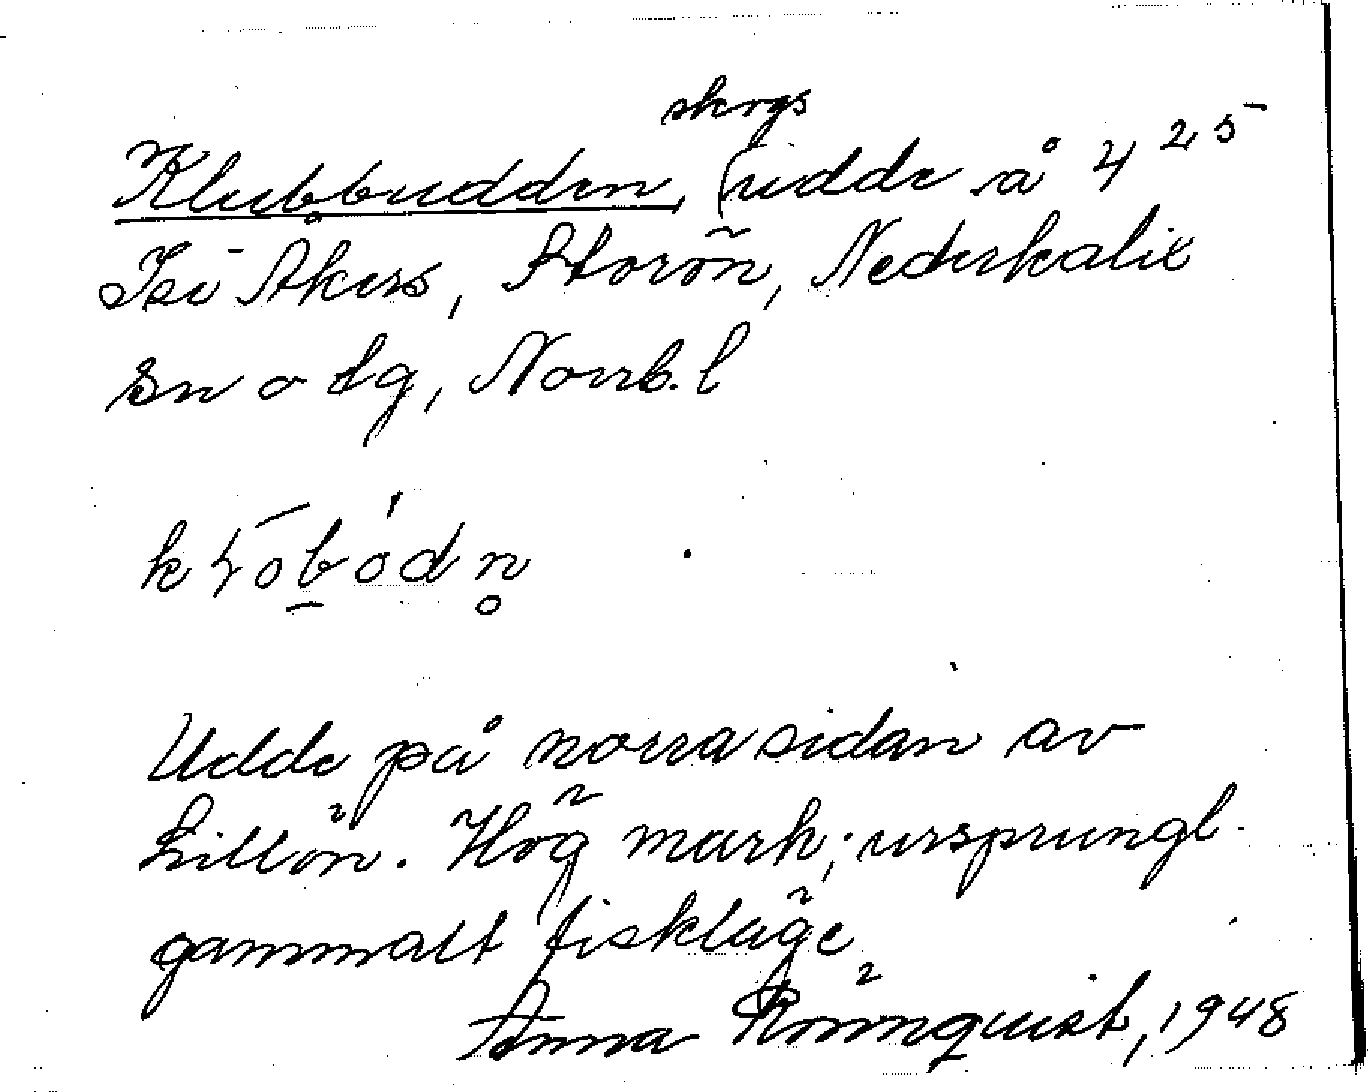 Klubbudden, skogsudde å 4²⁵
Åkers, Storön, Nederkalix
sn o tg, Norrb. l
Udde på norra sidan av
Lillön. Hög mark; ursprungl.
gammalt fiskläge
Anna Rönnquist, 1948